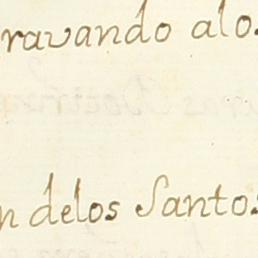 ravando alos
n delos Santos